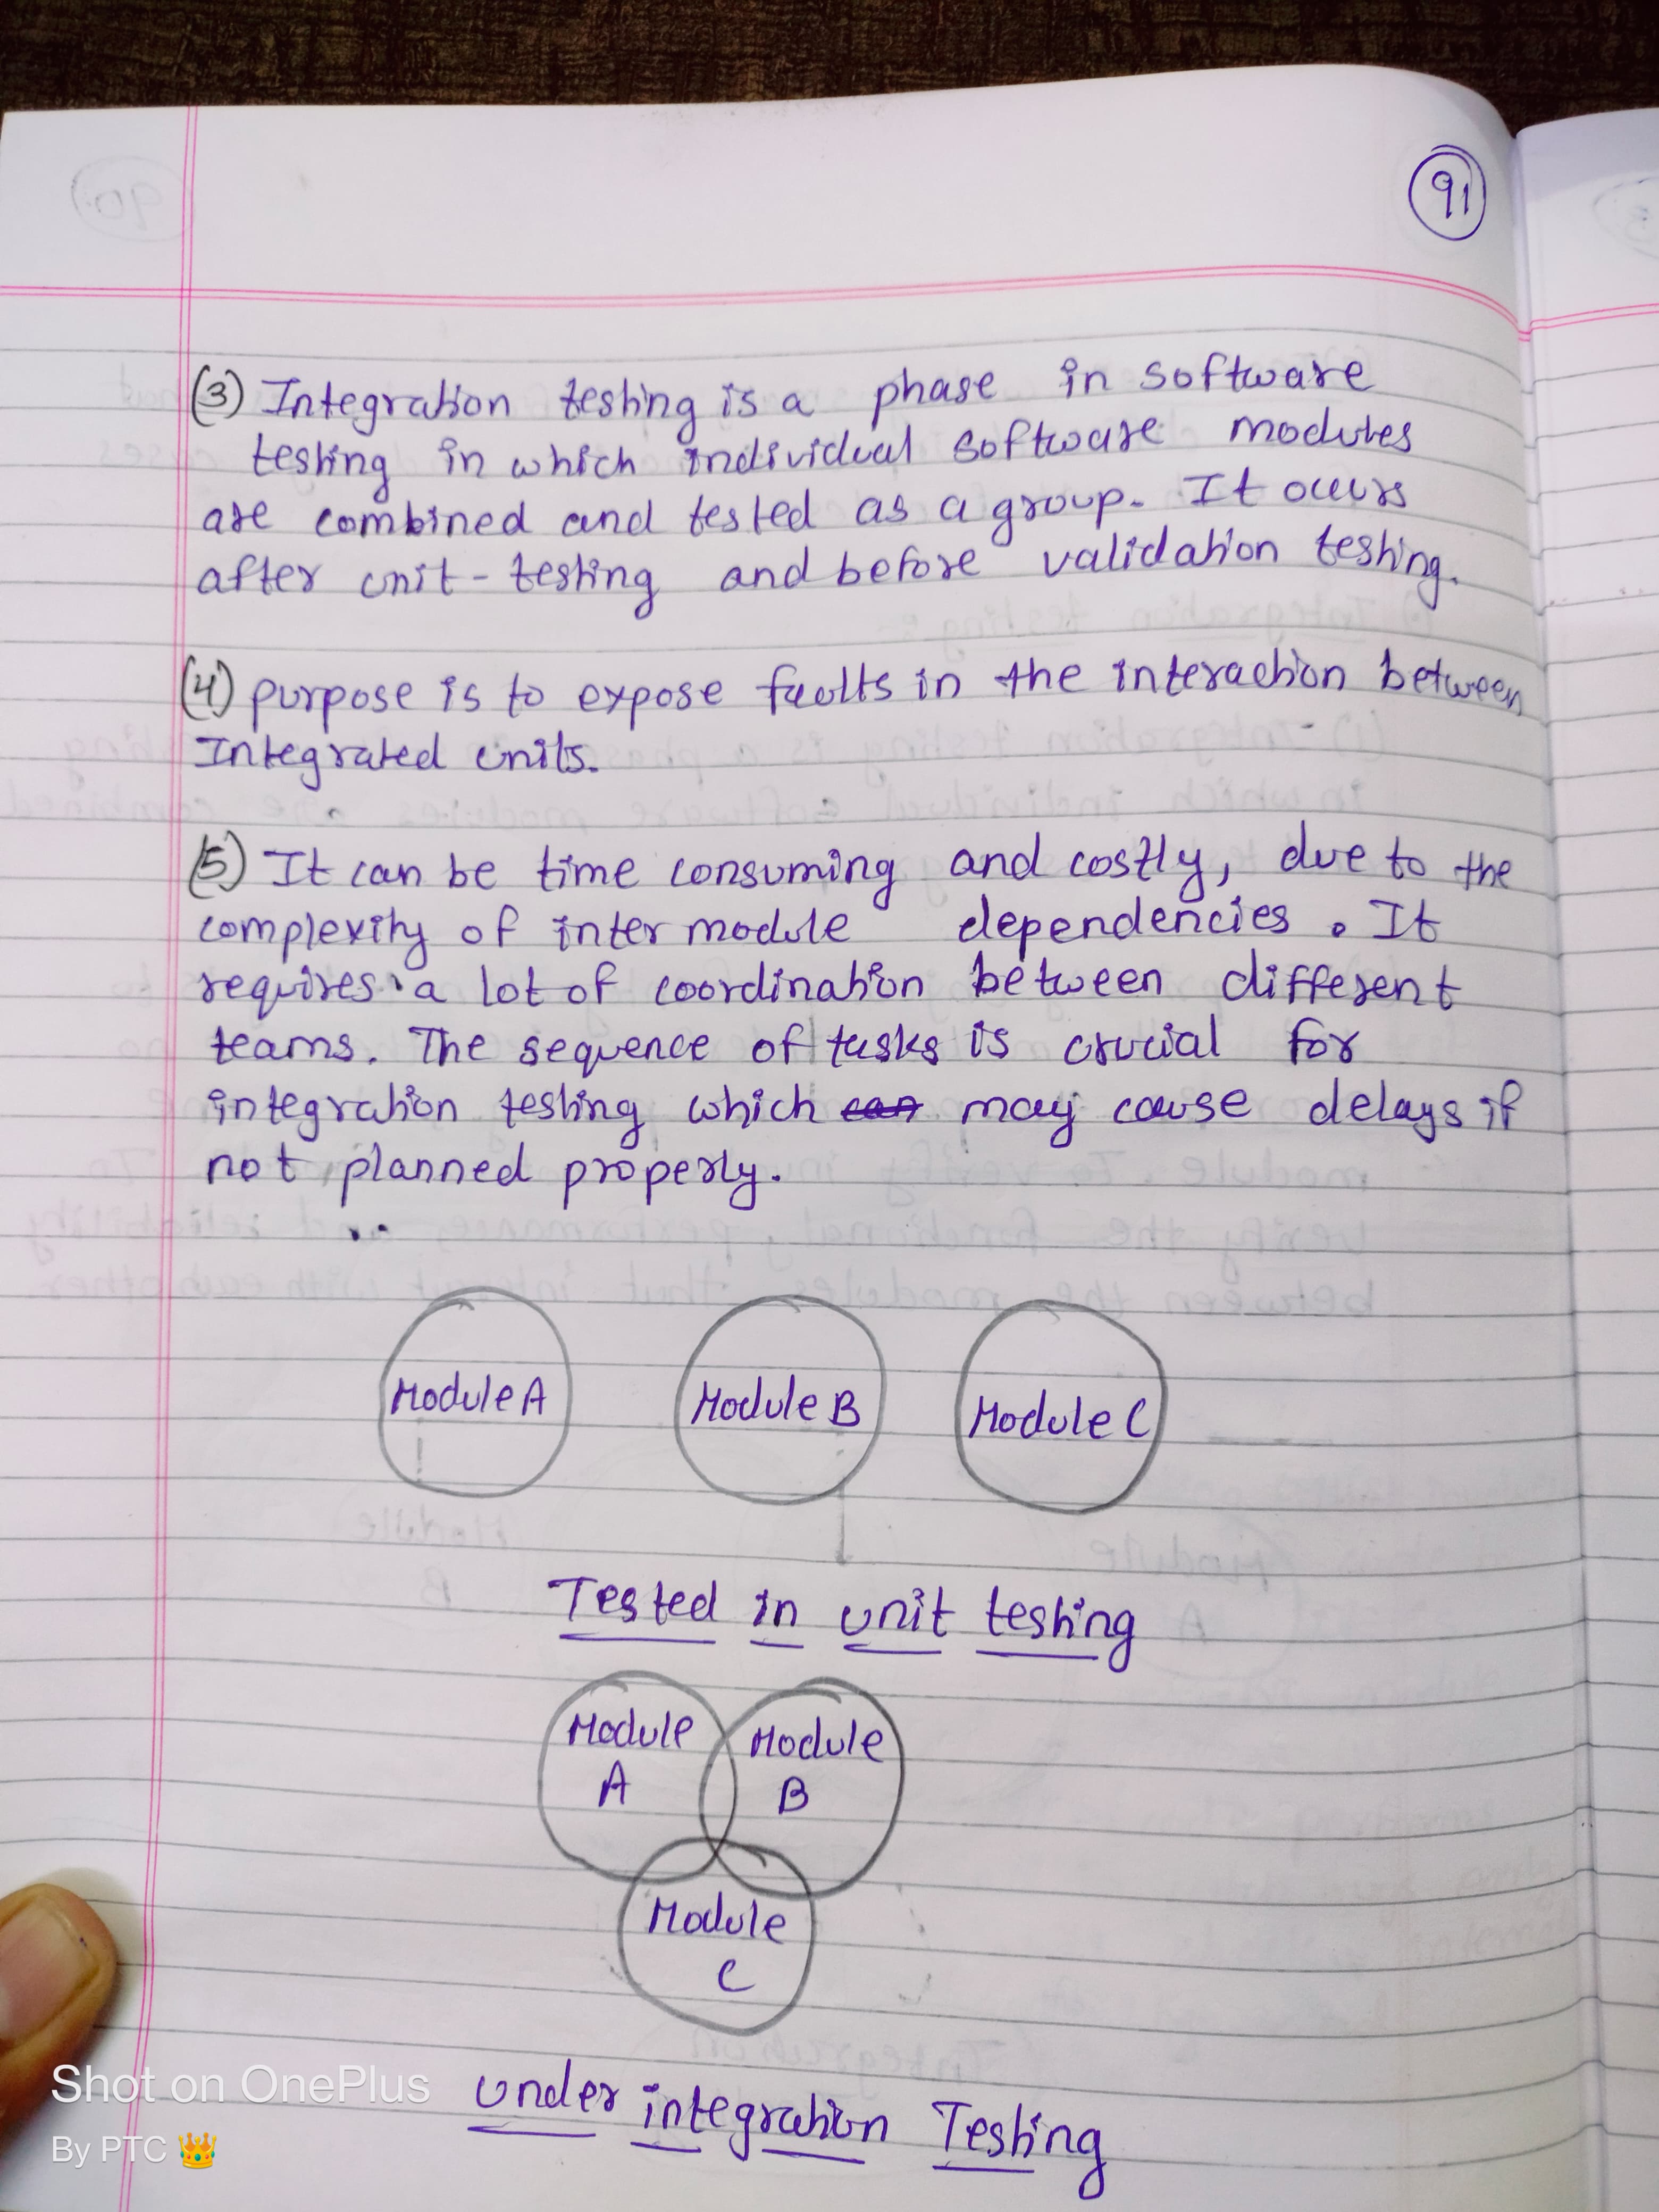 91
(3) Integration testing is a phase in software
testing in which individual software modules
are combined and tested as a group. It occurs
after unit-testing and before validation testing.
(4) purpose is to expose faults in the interaction between
Integrated units.
(5) It can be time consuming and costly, due to the
complexity of inter module dependencies. It
requires a lot of coordination between different
teams. The sequence of tasks is crucial for
integration testing which can may cause delays if
not planned properly.
Module A Module B Module C
Tested in unit testing
Module Module
A B
Module
C
Under integration Testing
Shot on OnePlus
By PTC 👑